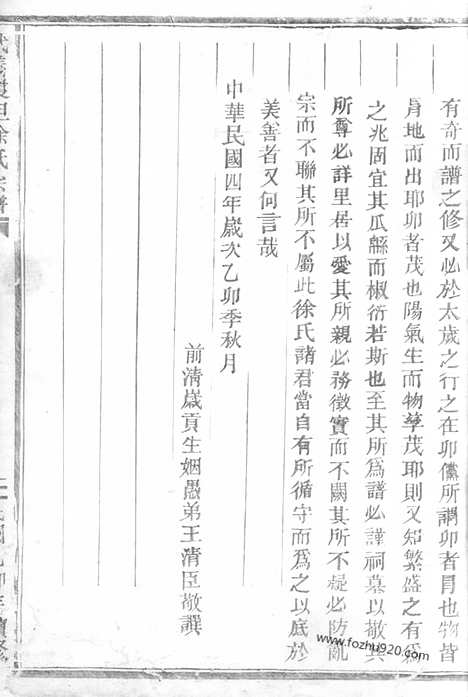 有奇而譜之修又必於太歲之行之在卯儻所謂卯者冒也物皆
冒地而出耶卯者茂也陽氣生而物孳茂耶則又知繁盛之有
之兆固宜其瓜緜而椒衍若斯也至其所爲譜必謹祠墓以敬其
所尊必詳里居以愛其所親必務徵實而不闕其所不疑必防亂
宗而不聯其所不屬此徐氏諸君當自有所循守而爲之以底於
美善者又何言哉
中華民國四年歲次乙卯季秋月
前清歲貢生姻愚弟王清臣敬譔
徐氏宗譜
www.fozhu920.com